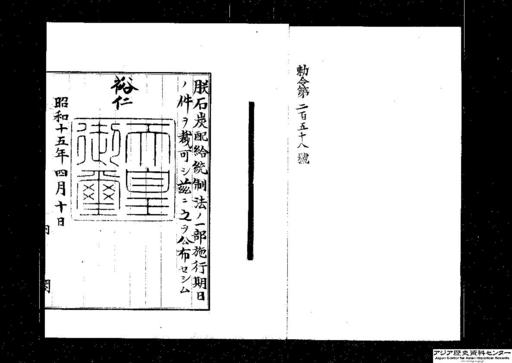 勅令第二百五十八號
朕石炭配給統制法ノ一部施行期日
ノ件ヲ裁可シ茲ニ之ヲ公布セシム
裕仁
天皇御璽
昭和十五年四月十日
内閣
アジア歴史資料センター
Japan Center for Asian Historical Records